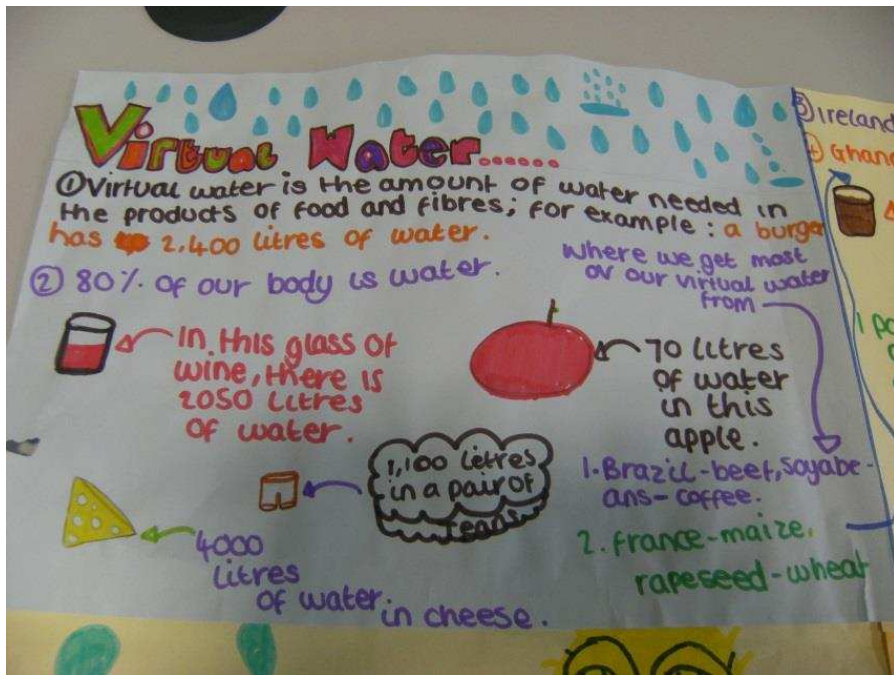 Virtual Water......
① Virtual water is the amount of water needed in
the products of food and fibres; for example: a burger
has 2,400 litres of water.
② 80% of our body is water.
where we get most
ov our virtual water
from
In this glass of
wine, there is
2050 litres
of water.
70 litres
of water
in this
apple.
1,100 litres
in a pair of
jeans
4000
litres
of water.
in cheese.
1. Brazil-beef, Soyabe-
ans-coffee.
2. france-maize,
rapeseed-wheat
③ Ireland
④ Ghana